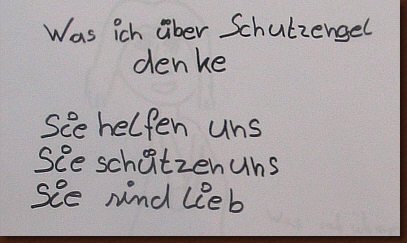 Was ich über Schutzengel
denke
Sie helfen uns
Sie schützen uns
Sie sind lieb